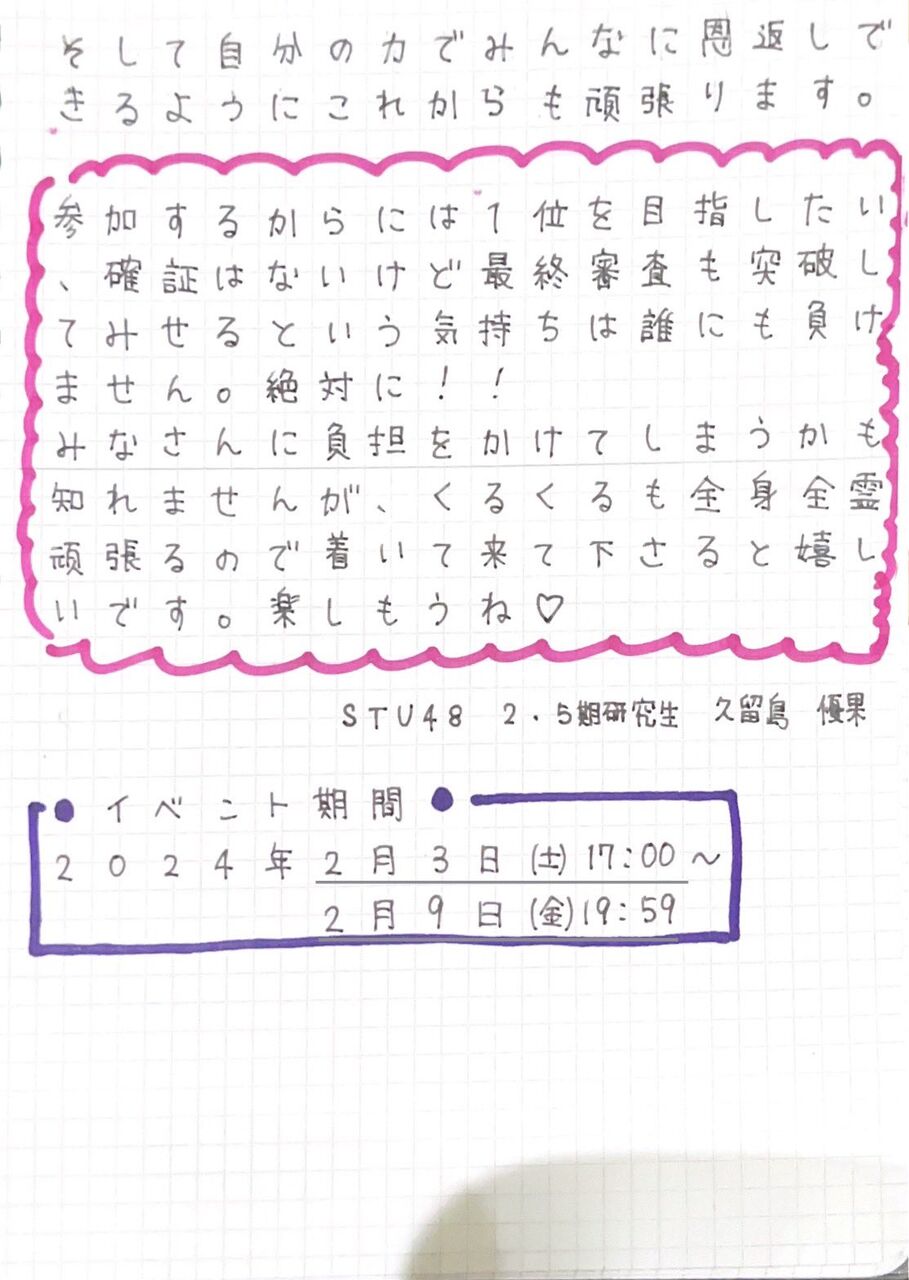 そして自分の力でみんなに恩返しで
きるようにこれからも頑張ります。
参加するからには1位を目指したい
、確証はないけど最終審査も突破し
てみせるという気持ちは誰にも負け
ません。絶対に!!
みなさんに負担をかけてしまうかも
知れませんが、くるくるも全身全霊
頑張るので着いて来て下さると嬉し
いです。楽しもうね♡
STU48 2.5期研究生 久留島 優果
●イベント期間●
2024年2月3日(土)17:00~
2月9日(金)19:59